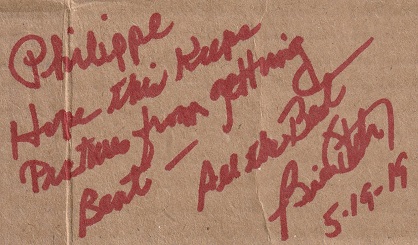 Philippe
Hope this Keeps
Pictures from getting
Bent —
All the Best
5-19-19